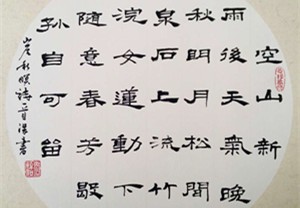 空山新
雨後天氣晚
秋明月松間
泉石上流竹
浣女蓮動下
隨意春芳歇
孫自可留
山居秋暝詩
書